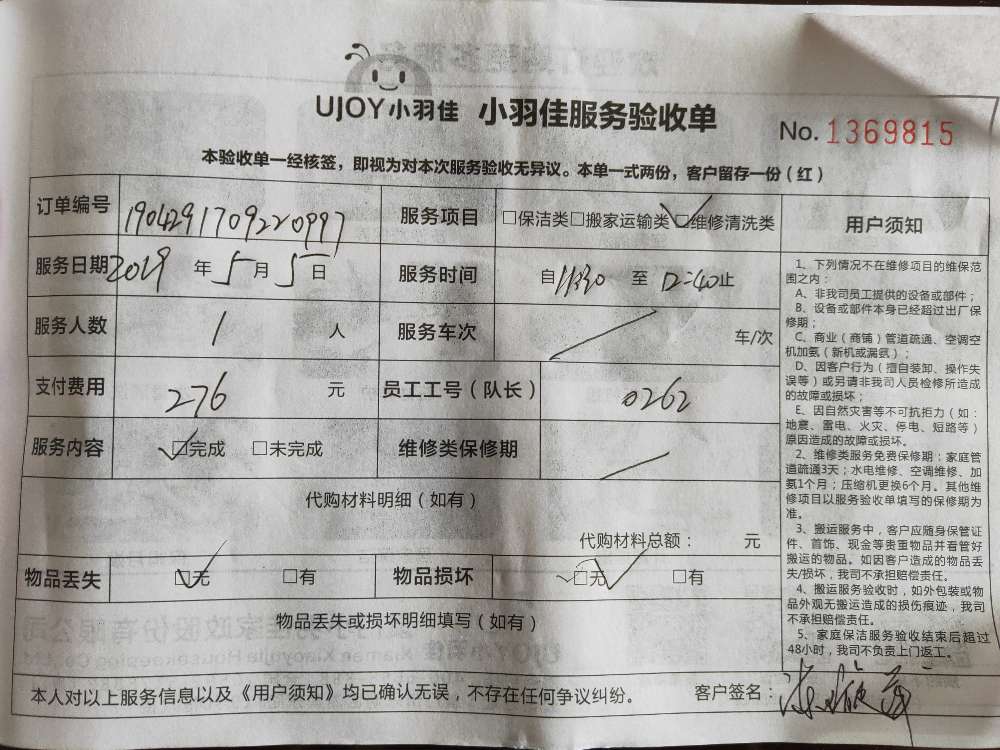 UJOY小羽佳 小羽佳服务验收单
No. 1369815
本验收单一经核签，即视为对本次服务验收无异议。本单一式两份，客户留存一份（红）
订单编号 1904291709220997 服务项目 □保洁类□搬家运输类☑维修清洗类
服务日期 2019 年 5 月 5 日 服务时间 自 11:30 至 12:40 止
服务人数 1 人 服务车次 / 车/次
支付费用 276 元 员工工号（队长） 0262
服务内容 ☑完成 □未完成 维修类保修期 /
代购材料明细（如有）
代购材料总额： 元
物品丢失 ☑无 □有 物品损坏 ☑无 □有
物品丢失或损坏明细填写（如有）
本人对以上服务信息以及《用户须知》均已确认无误，不存在任何争议纠纷。 客户签名：
用户须知
1、下列情况不在维修项目的维保范
围之内：
A、非我司员工提供的设备或部件；
B、设备或部件本身已经超过出厂保
修期；
C、商业（商铺）管道疏通、空调空
机加氨（新机或漏氨）；
D、因客户行为（擅自装卸、操作失
误等）或另请非我司人员检修所造成
的故障或损坏；
E、因自然灾害等不可抗拒力（如：
地震、雷电、火灾、停电、短路等）
原因造成的故障或损坏。
2、维修类服务免费保修期；家庭管
道疏通3天；水电维修、空调维修、加
氨1个月；压缩机更换6个月。其他维
修项目以服务验收单填写的保修期为
准。
3、搬运服务中，客户应随身保管证
件、首饰、现金等贵重物品并看管好
搬运的物品。如因客户造成的物品丢
失/损坏，我司不承担赔偿责任。
4、搬运服务验收时，如外包装或物
品外观无搬运造成的损伤痕迹，我司
不承担赔偿责任。
5、家庭保洁服务验收结束后超过
48小时，我司不负责上门返工。